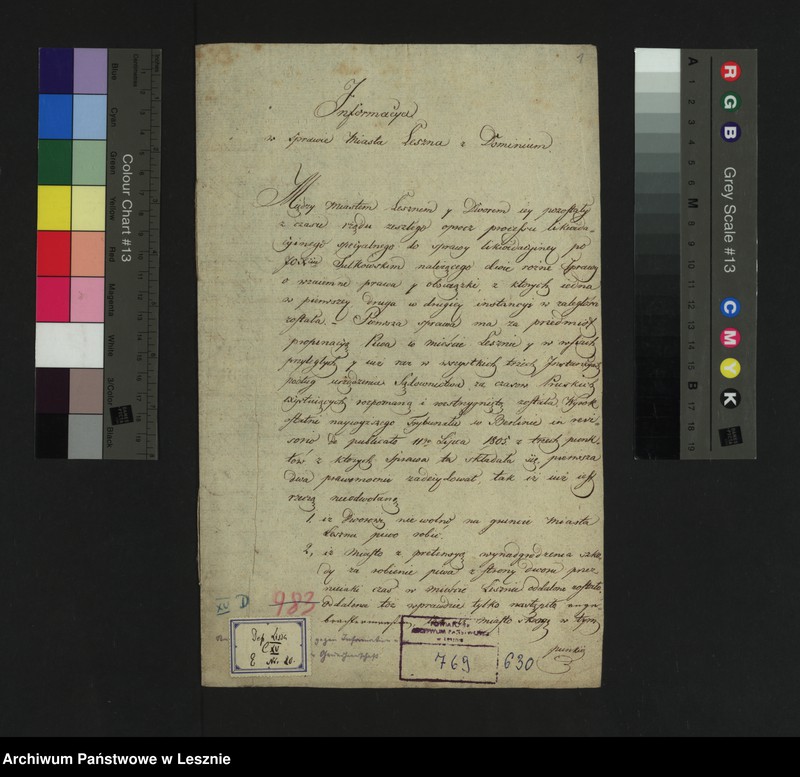 1
Informacya
w sprawie Miasta Leszna z Dominium.
Między Miastem Lesznem y Dworem iey pozostały
z czasu rządu zeszłego oprocz processu likwida-
cyinego specyalnego do sprawy likwidacyiney po
Sułkowskim należącego dwie rożne sprawy
o wzaiemne prawa y obowiązki, z ktorych iedna
w pierwszey, druga w drugiey instancyi w zaległości
została. – Pierwsza sprawa ma za przedmiot
propinacyą Piwa w mieście Lesznie y w wsiach
przyległych y iuż raz w wszystkich trzech Instancyach
podług urządzenia Sądownictwa za czasow Pruskich
rozpoznaną i rozstrzygniętą została. Wyrok
ostatni naywyższego Trybunału w Berlinie in revi-
sorio de publicato 11go Lipca 1805 z trzech punk-
tow z ktorych sprawa ta składała się, pierwsze
dwa prawomocnie zadecydował, tak iż iuż iest
rzeczą nieodwołaną
1. iż Dworowi nie wolno na gruncie Miasta
Leszna piwo robić.
2, iż Miasto z pretensyą wynadgrodzenia szko-
dy za robienie piwa z strony dworu przez
czas w mieście Lesznie oddalone zostało,
oddalenie toż wprawdzie tylko nastąpiło
miasto skargę w tym
punkcie
XV D
983
Dep. Lissa
C XV
E Nr. 20.
gegen
ARCHIWUM PAŃSTWOWE
769
630
Colour Chart #13
Blue
Cyan
Green
Yellow
Red
Magenta
White
3/Color
Black
Grey Scale #13
R
G
B
C
M
Y
K
A 1 2 3 4 5 6 M 8 9 10 11 12 13 14 15 B 17 18 19
Archiwum Państwowe w Lesznie